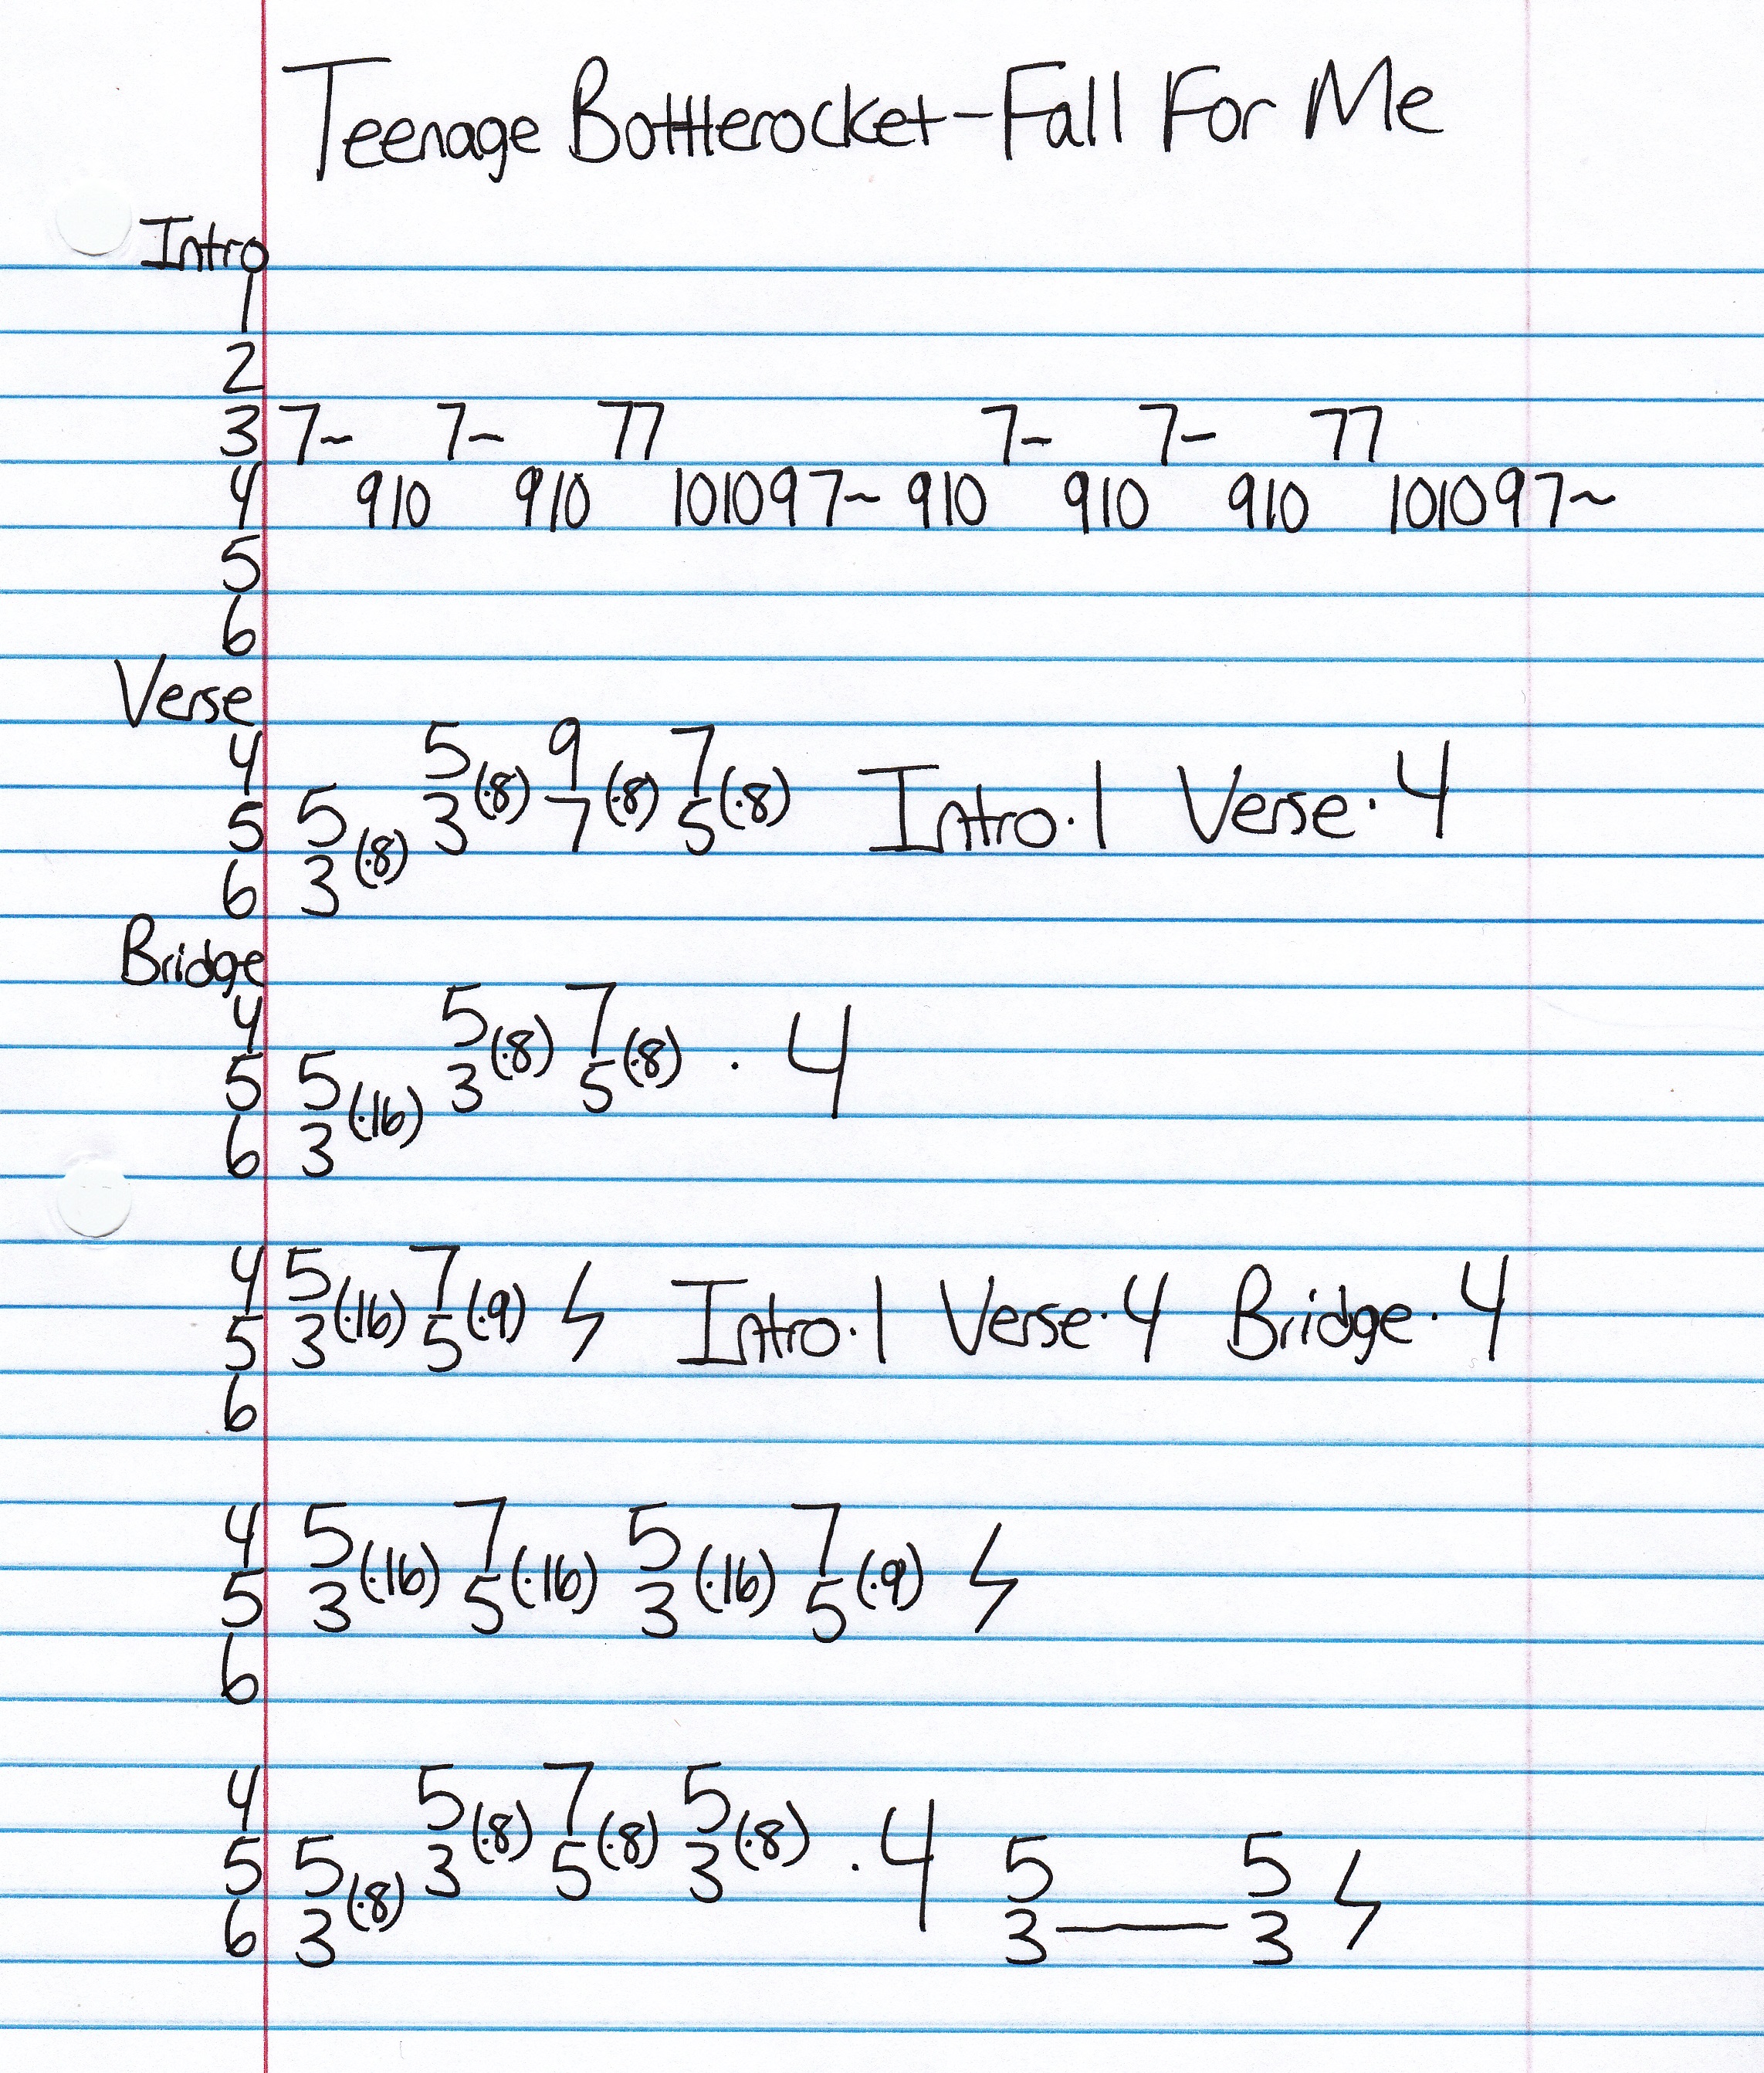 Teenage Bottlerocket-Fall For Me
Intro
1
2
3 7~ 7~ 77 7~ 7~ 77
4 910 910 101097~ 910 910 910 101097~
5
6
Verse
4 5 9 7
5 5 3 (·8) 7 (·8) 5 (·8) Intro·1 Verse·4
6 3 (·8)
Bridge
4 5 7
5 5 3 (·8) 5 (·8) · 4
6 3 (·16)
4 5 7
5 3 (·16) 5 (·9) Intro·1 Verse·4 Bridge·4
6
4 5 7 5 7
5 3 (·16) 5 (·16) 3 (·16) 5 (·9)
6
4 5 7 5
5 5 3 (·8) 5 (·8) 3 (·8) · 4 5 5
6 3 (·8) 3 — 3